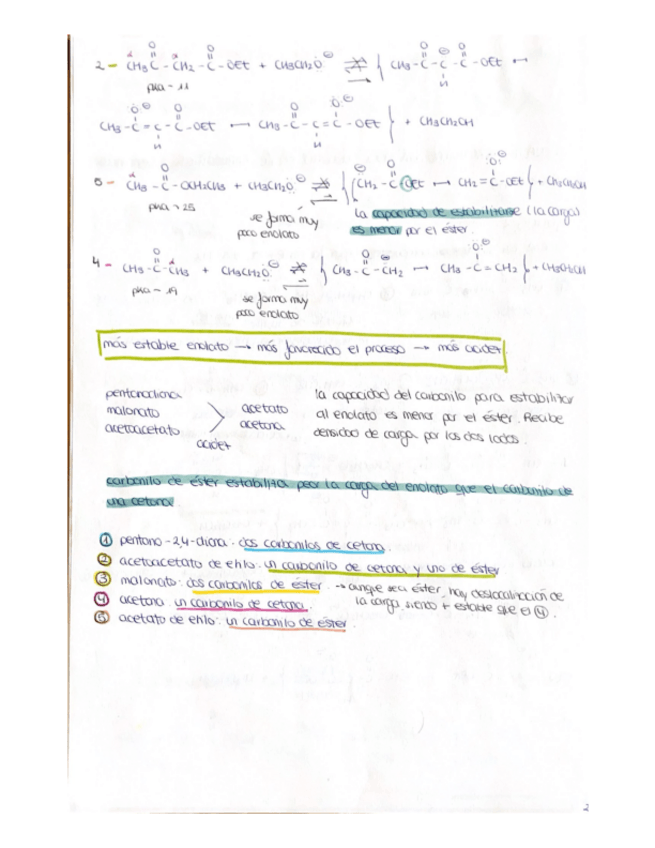 2 - CH3C - CH2 - C - OEt + CH3CH2O ⊖ ⇌ { CH3 - C - C - C - OEt ↔
pKa ~ 11
CH3 - C = C - C - OEt ↔ CH3 - C - C = C - OEt } + CH3CH2OH
5 - CH3 - C - OCH2CH3 + CH3CH2O ⊖ ⇌ { CH2 - C - OEt ↔ CH2 = C - OEt } + CH3CH2OH
pKa ~ 25
se forma muy
poco enolato
la capacidad de estabilizarse (la carga)
es menor por el éster.
4 - CH3 - C - CH3 + CH3CH2O ⊖ ⇌ { CH3 - C - CH2 ↔ CH3 - C = CH2 } + CH3CH2OH
pKa ~ 19
se forma muy
poco enolato
más estable enolato → más favorecido el proceso → más acidez
pentanodiona
malonato
acetoacetato
>
acidez
acetato
acetona
la capacidad del carbonilo para estabilizar
al enolato es menor por el éster. Recibe
densidad de carga por los dos lados.
carbonilo de éster estabiliza peor la carga del enolato que el carbonilo de
una cetona
① pentano-2,4-diona: dos carbonilos de cetona.
② acetoacetato de etilo: un carbonilo de cetona y uno de éster
③ malonato: dos carbonilos de éster. → aunque sea éster, hay deslocalización de
la carga, siendo + estable que el ④.
④ acetona: un carbonilo de cetona.
⑤ acetato de etilo: un carbonilo de éster.
2